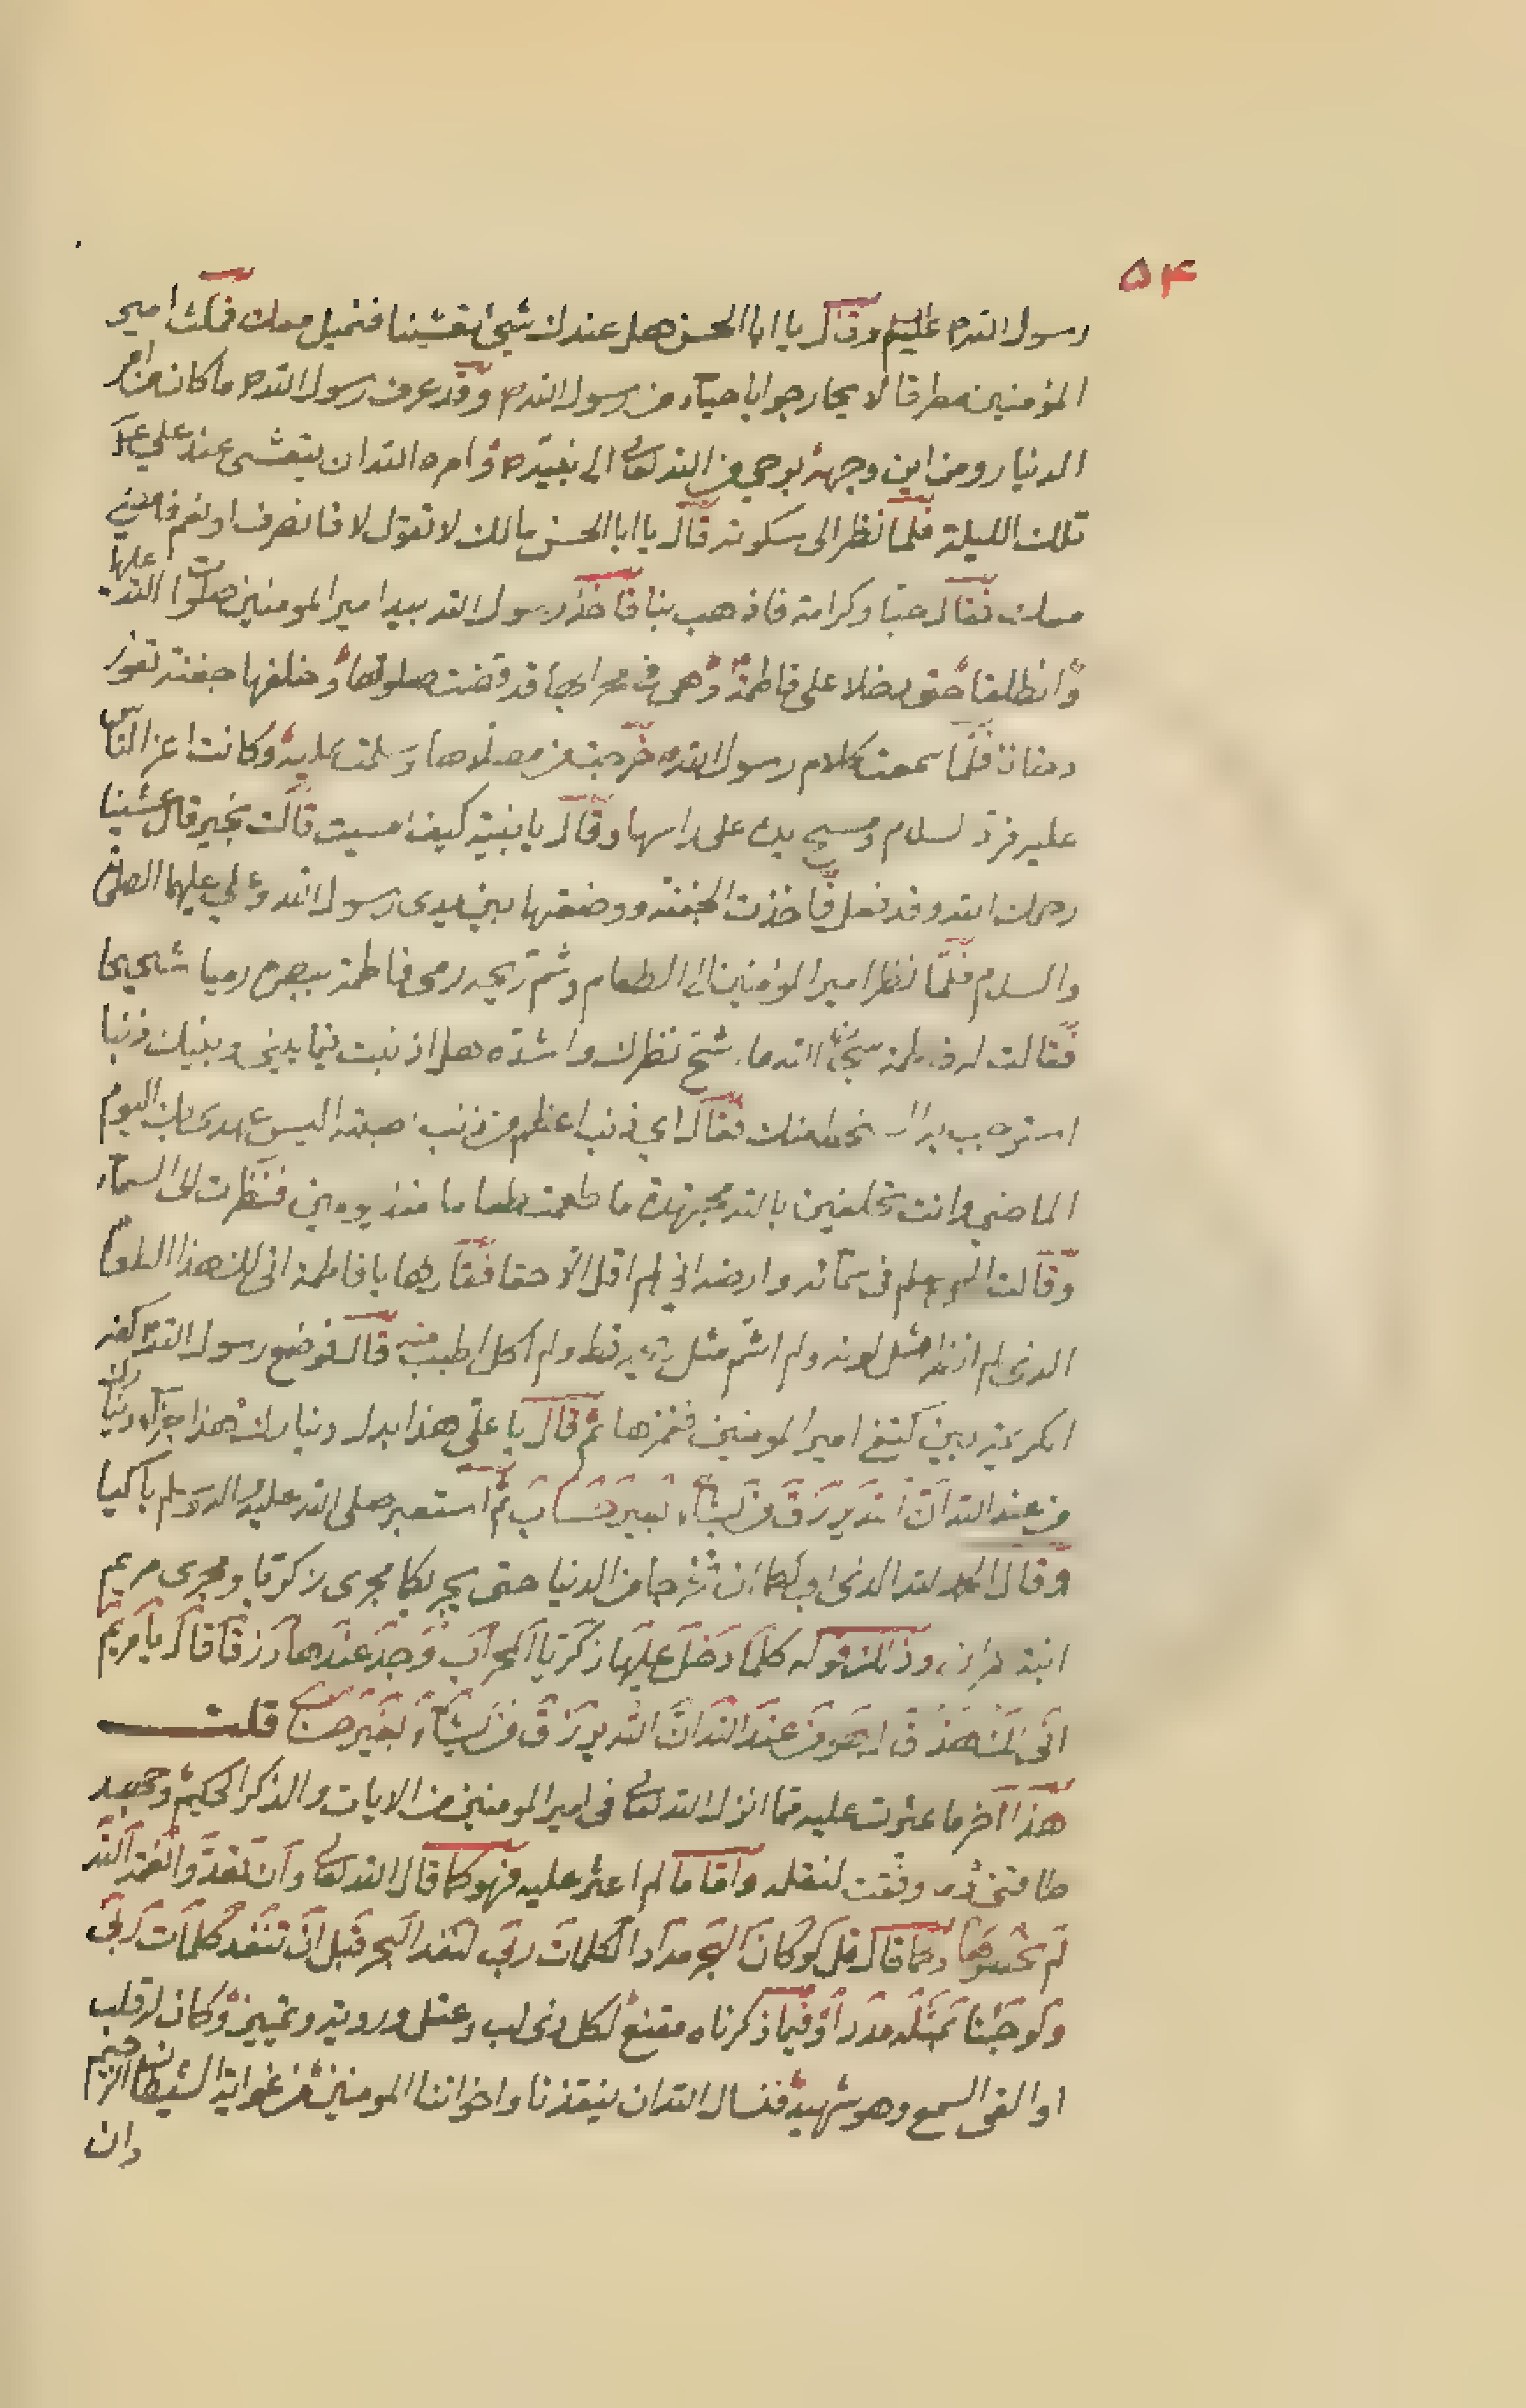 ۵۴
رسول الله ص عليهم وقال يا ابا الحسن هل عندك شيئ تعشينا فنميل معك فمكث امير
المؤمنين مطرقا لا يحار جوابا حياء من رسول الله ص وقد عرف رسول الله ص ما كان من امر
الدنيار ومن اين وجهه بوحي من الله تعالى الى نبيه ص وامره الله ان يتعشى عند علي ع
تلك الليلة فلما نظر الى سكوته قال يا ابا الحسن مالك لا تقول لا فانصرف او نعم فامضي
معك فقال حبا وكرامة فاذهب بنا فاخذ رسول الله بيد امير المومنين صلوات الله عليها
وانطلقا حتى دخلا على فاطمة وهى فى محرابها قد قضت صلوتها وخلفها جفنة تفور
دخانا فلما سمعت كلام رسول الله ص خرجت من مصلاها وسلمت عليه وكانت اعز الناس
عليه فرد لسلام ومسح يده على راسها وقال يا بنية كيف امسيت قالت بخير قال عشينا
رحمك الله وقد فعل فاخذت الجفنة ووضعتها بين يدى رسول الله وعلي عليهما الصلوة
والسلام فلما نظر امير المؤمنين الى الطعام وشم ريحه رمى فاطمة ببصره رميا شحيحا
فقالت له فاطمة سبحان الله ما اشح نظرك واشده هل اذنبت فيما بيني وبينك ذنبا
استوجب به السخط منك فقال اي ذنب اعظم من ذنب اصبته اليس عهدى بك اليوم
الماضي وانت تحلفين بالله مجتهدة ما طعمت طعاما منذ يومين فنظرت الى السماء
وقالت الهي يعلم فى سمائه وارضه اني لم اقل الا حقا فقال لها يا فاطمة انى لك هذا الطعام
الذى لم انظر مثل لونه ولم اشم مثل ريحه قط ولم اكل اطيب منه قال فوضع رسول الله ص كفه
الكريمة بين كتفي امير المومنين فغمزها ثم قال يا على هذا بدل دينارك هذا جزاء دينارك
من عند الله ان الله يرزق من يشاء بغير حساب ثم استعبر صلى الله عليه واله وسلم باكيا
وقال الحمد لله الذى ابى لكما ان تخرجا من الدنيا حتى يجريكما مجرى زكريا ومجرى مريم
ابنة عمران وذلك قوله كلما دخل عليها زكريا المحراب وجد عندها رزقا قال يا مريم
انى لك هذا قالت هو من عند الله ان الله يرزق من يشاء بغير حساب قلت
هذا اخر ما عثرت عليه مما انزل الله تعالى فى امير المومنين من الايات والذكر الحكيم وبحسب
طاقتي وفقت لنقله واما ما لم اعثر عليه فهو كما قال الله تعالى وان تعدوا نعمة الله
لم تحصوها وكما قال قل لو كان البحر مدادا لكلمات ربي لنفد البحر قبل ان تنفد كلمات ربي
ولو جئنا بمثله مددا وفيما ذكرناه مقنع لكل ذى لب وعقل وروية وتمييز وكان له قلب
او القى السمع وهو شهيد فنسال الله ان ينقذنا واخواننا المومنين من غواية الشيطان الرجيم
وان